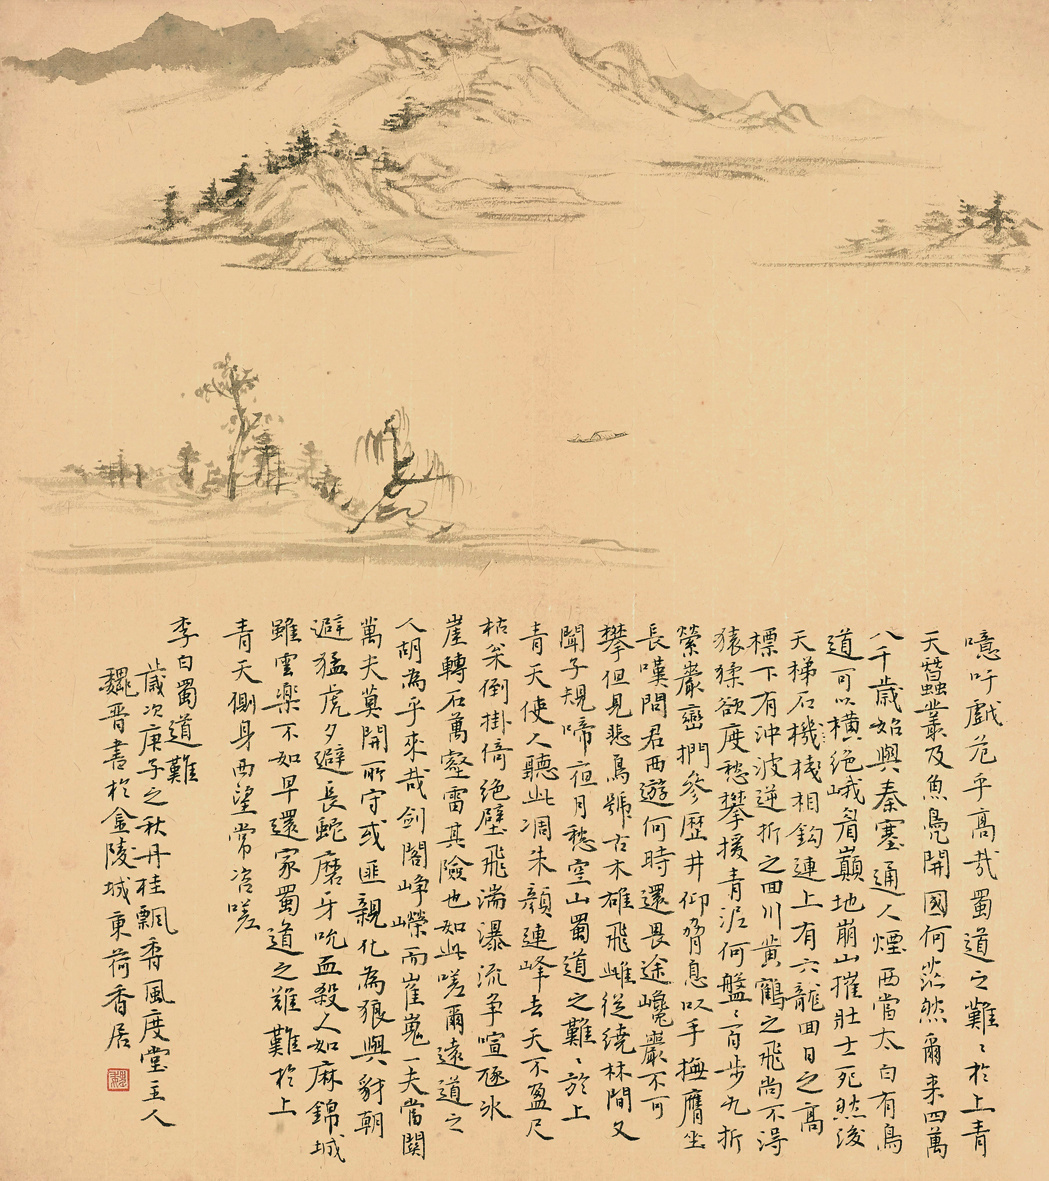 噫吁戲危乎高哉蜀道之難〻於上青
天蠶叢及魚鳧開國何茫然爾来四萬
八千歲始與秦塞通人煙西當太白有鳥
道可以横絶峨眉巔地崩山摧壯士死然後
天梯石機棧相鈎連上有六龍回日之高
標下有沖波逆折之回川黄鶴之飛尚不得
猿猱欲度愁攀援青泥何盤〻百步九折
縈巖巒捫參歷井仰脅息以手撫膺坐
長嘆問君西遊何時還畏途巉巖不可
攀但見悲鳥號古木雄飛雌從繞林間又
聞子規啼夜月愁空山蜀道之難〻於上
青天使人聽此凋朱顏連峰去天不盈尺
枯松倒掛倚絶壁飛湍瀑流争喧豗氷
崖轉石萬壑雷其險也如此嗟爾遠道之
人胡為乎來哉剑閣峥嶸而崔嵬一夫當關
萬夫莫開所守或匪親化為狼與豺朝
避猛虎夕避長蛇磨牙吮血殺人如麻錦城
雖雲樂不如早還家蜀道之難難於上
青天側身西望常咨嗟
李白蜀道難
歲次庚子之秋丹桂飄香風度堂主人
魏晋書於金陵城東荷香居